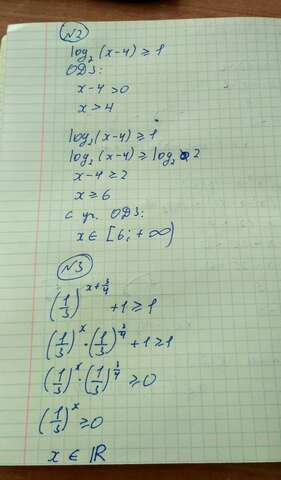 N2
log₂(x-4) ≥ 1
ОДЗ:
x-4>0
x>4
log₂(x-4) ≥ 1
log₂(x-4) ≥ log₂ 2
x-4 ≥ 2
x ≥ 6
с уч. ОДЗ:
x ∈ [6; +∞)
N3
(1/3)^(x+3/4) + 1 ≥ 1
(1/3)^x · (1/3)^(3/4) + 1 ≥ 1
(1/3)^x · (1/3)^(3/4) ≥ 0
(1/3)^x ≥ 0
x ∈ ℝ